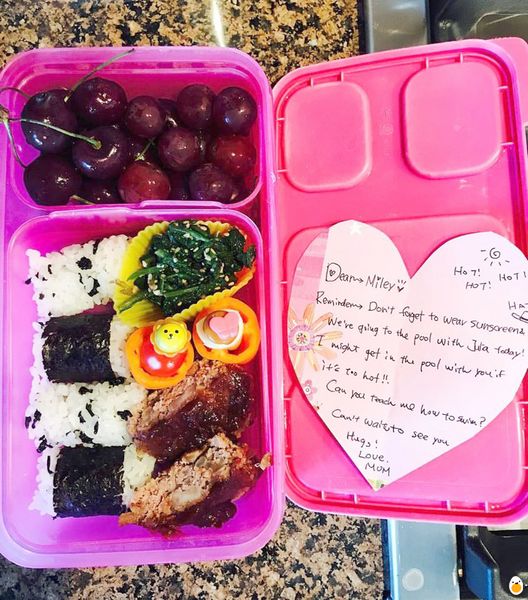 Dear Miley
HOT!
HOT!
HOT!
Reminder Don't foget to wear sunscreen
We're going to the pool with Julia today!
I might get in the pool with you if
it's too hot!!
Can you teach me how to swim?
Can't wait to see you
Hugs!
Love,
MOM